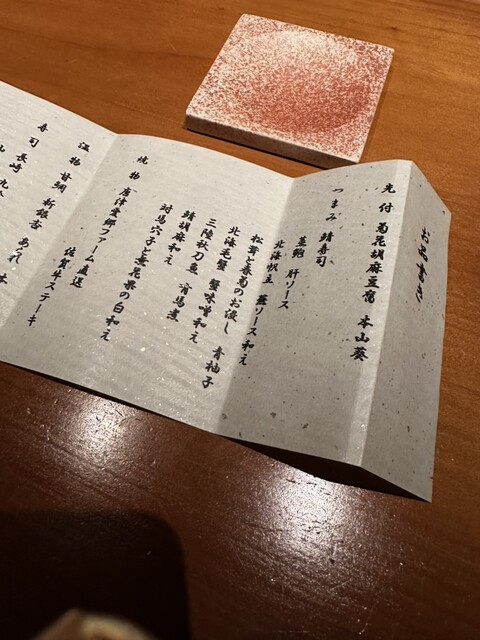 お品書き
先付 菊花胡麻豆腐 本山葵
つまみ 鯖寿司
蒸鮑 肝ソース
北海帆立 蕪ソース和え
松茸と春菊のお浸し
北海毛蟹 蟹味噌和え 青柚子
三陸秋刀魚 有馬煮
鯖胡麻和え
対馬穴子と無花果の白和え
焼物 唐津愛郷ファーム直送
佐賀牛ステーキ
温物 甘鯛 新銀杏 あられ
寿司 長崎